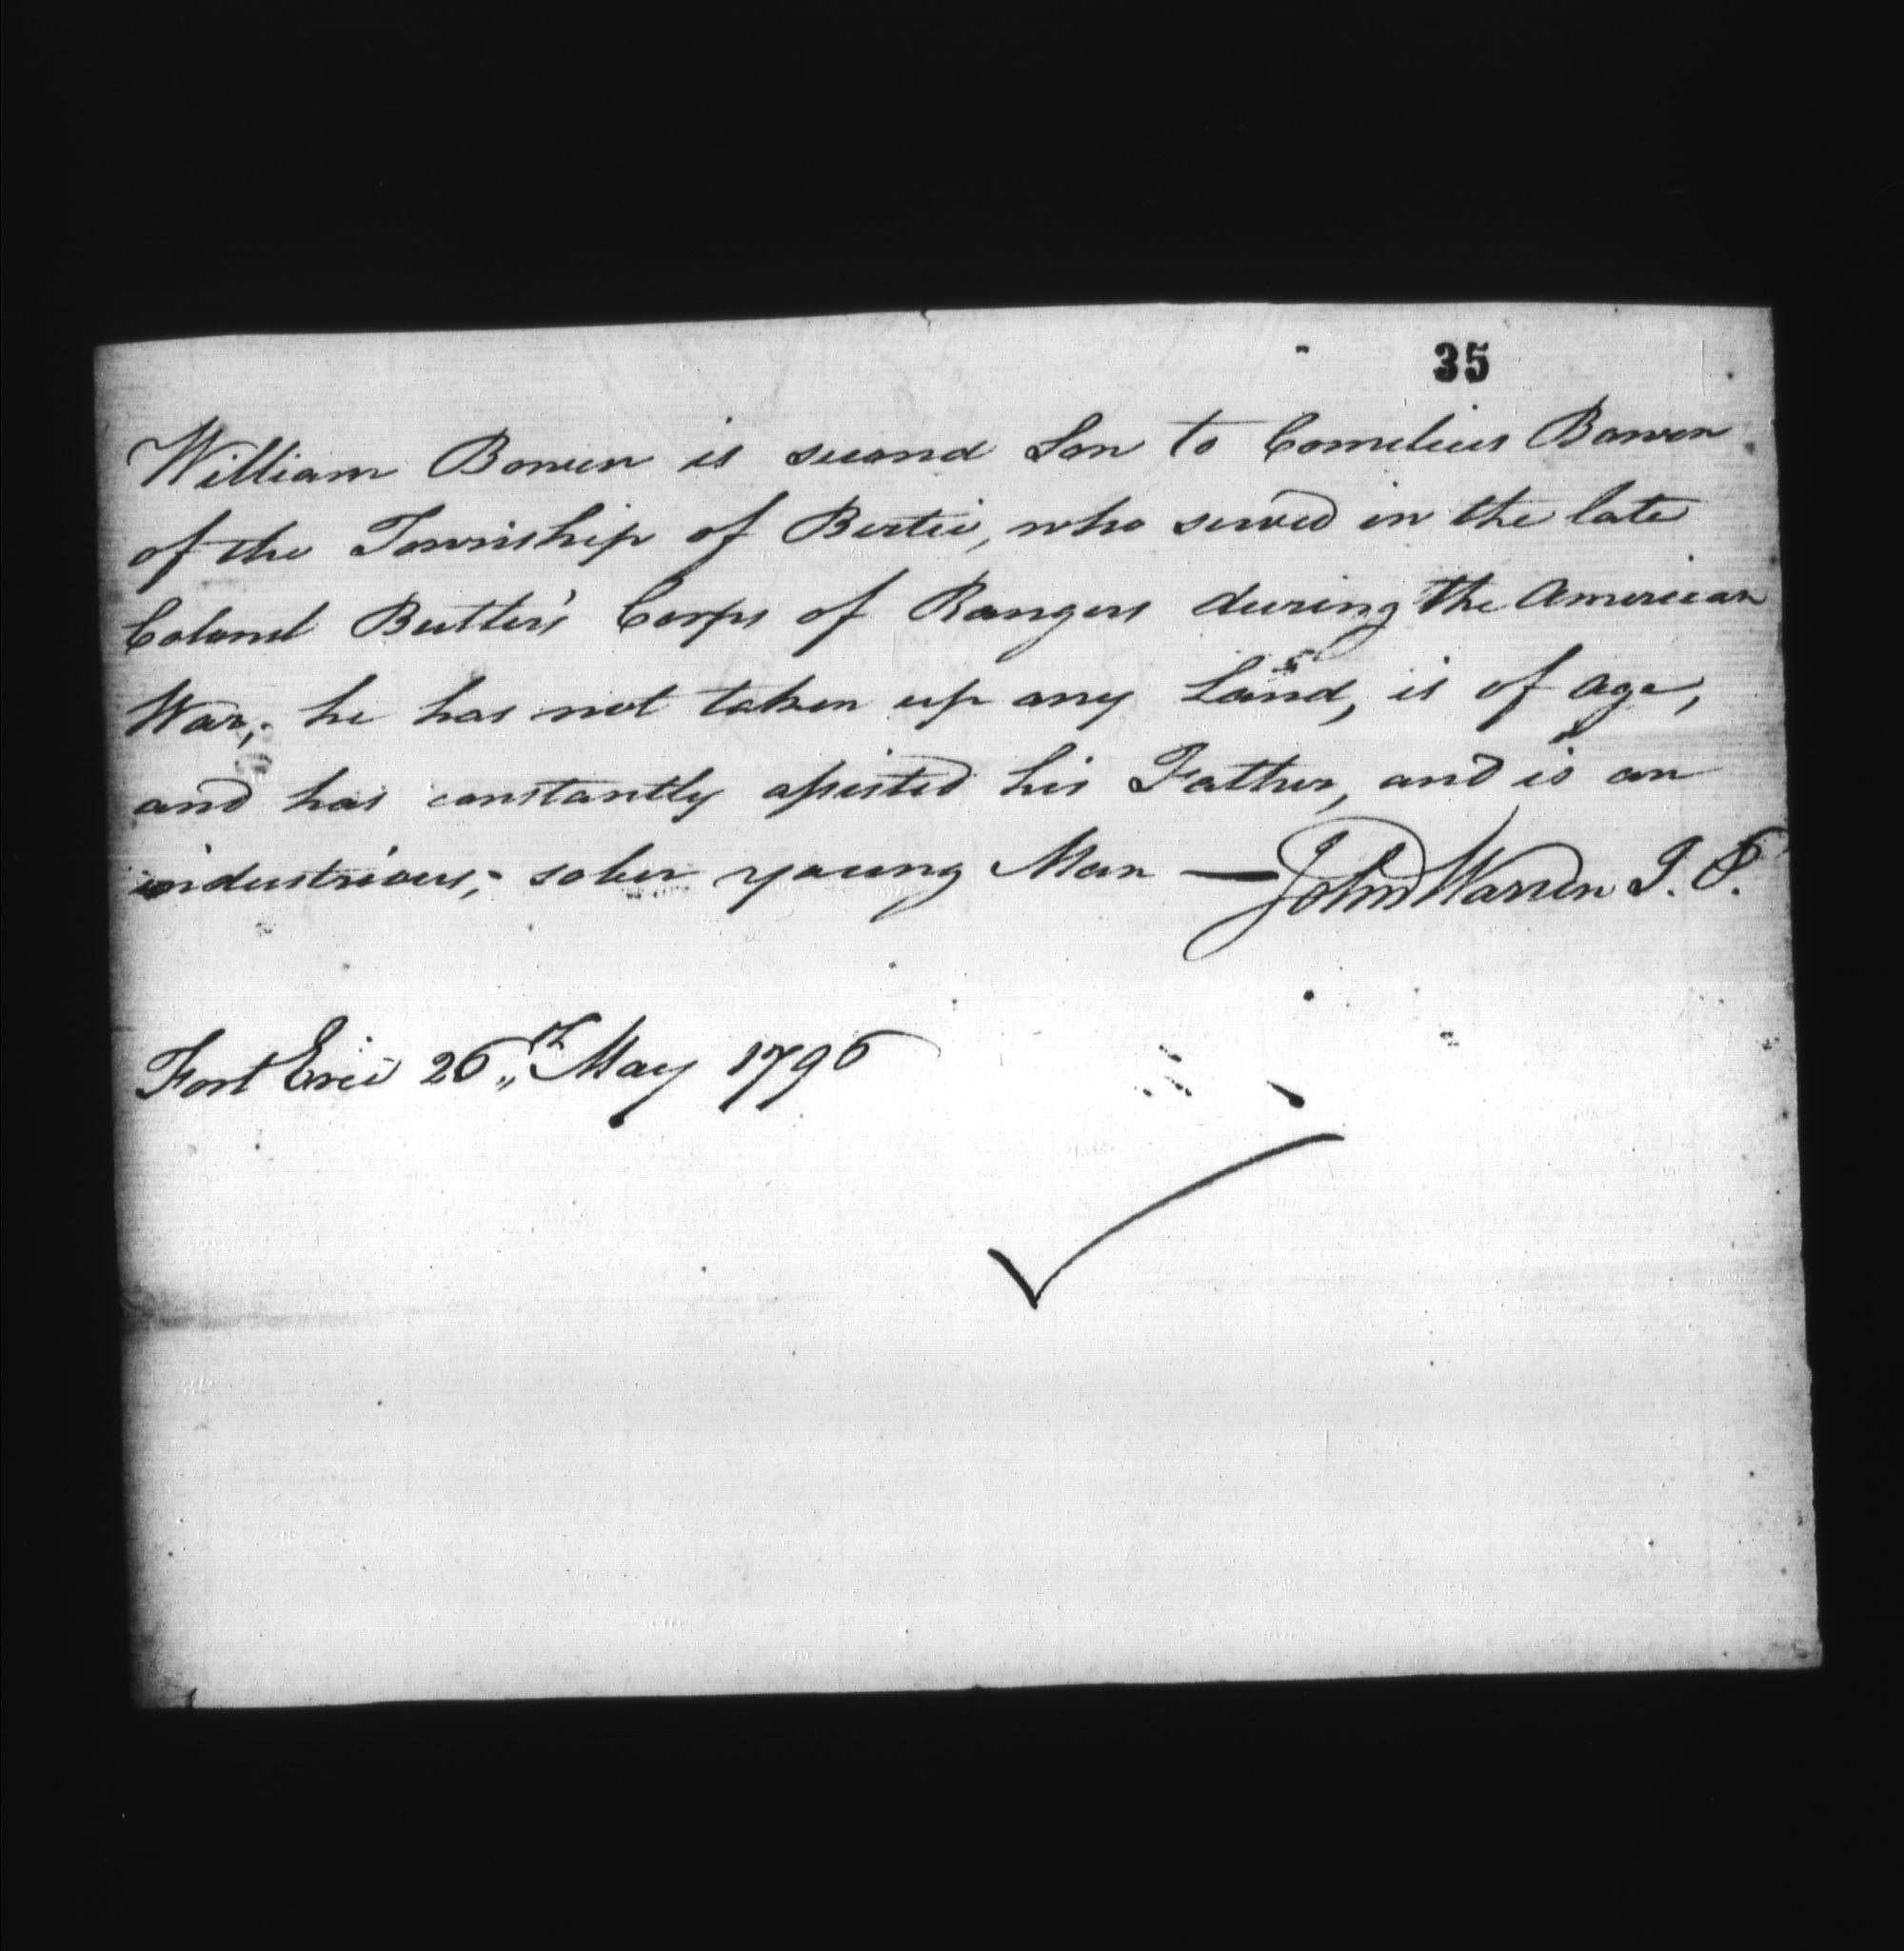 35
William Bowen is second Son to Cornelius Bowen
of the Township of Bertie, who served in the late
Colonel Butler's Corps of Rangers during the American
War; he has not taken up any Land, is of age,
and has constantly assisted his Father, and is an
industrious, sober young Man — John Warren J. P.
Fort Erie 26th May 1796